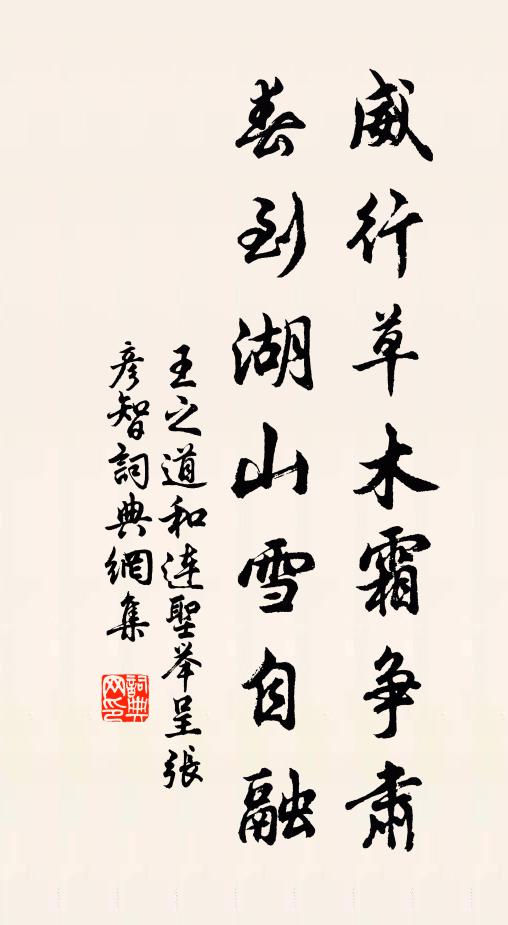 威行草木霜争肃
春到湖山雪自融
王之道和连聖举呈張
彦智詞典網集
詞典网印